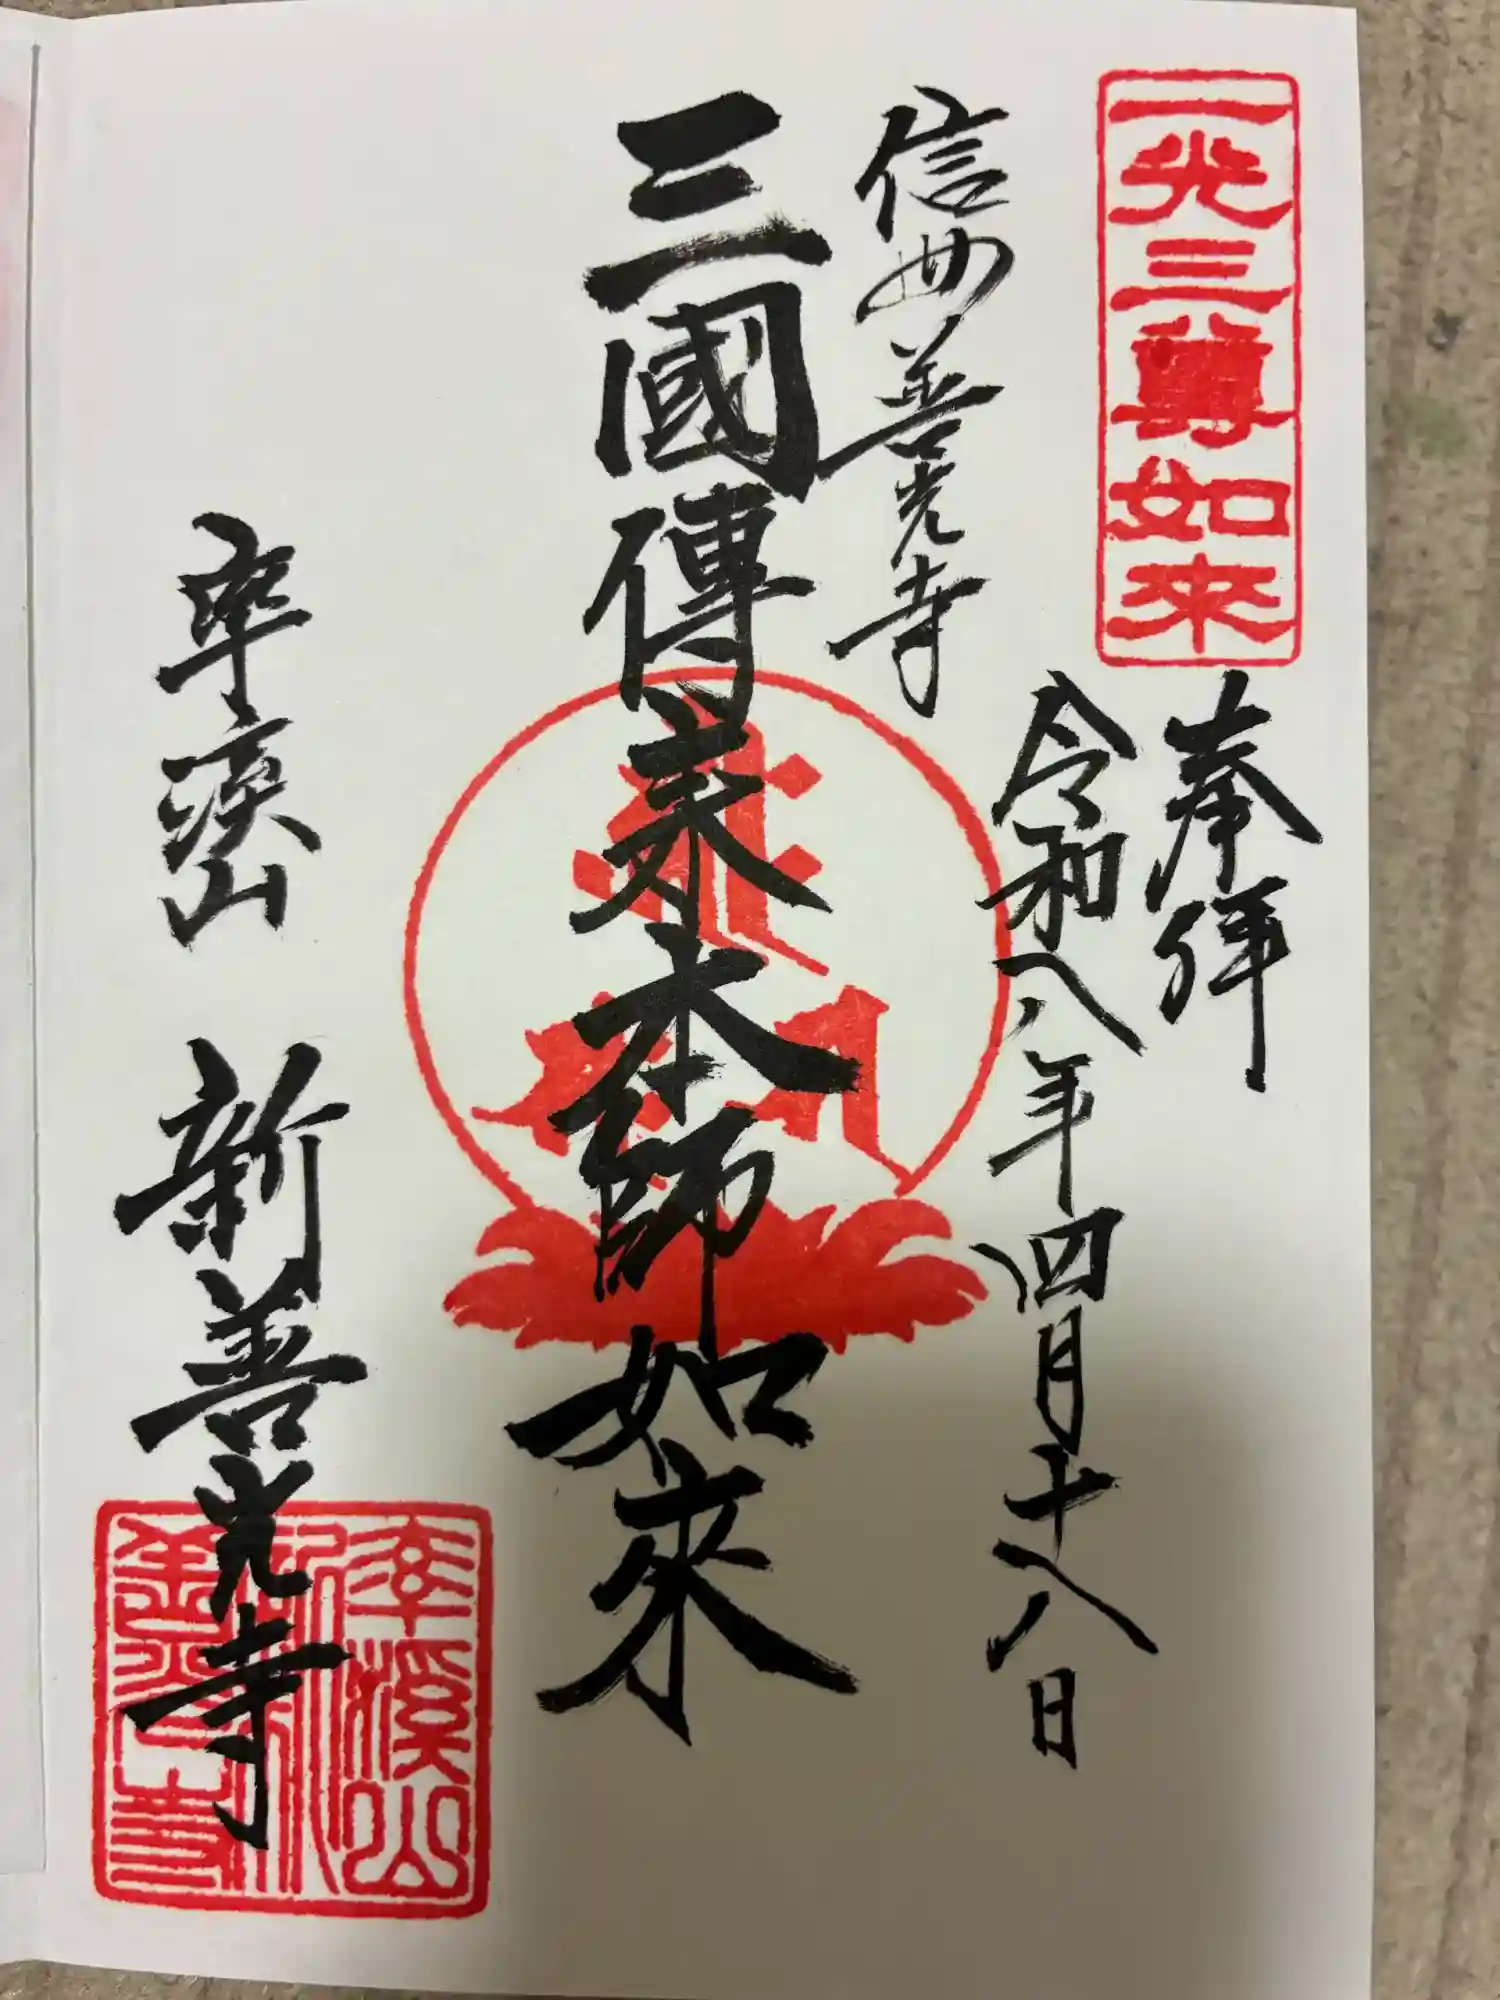 一光三尊如來
奉拝
令和八年四月十八日
信州善光寺
三國傳来本師如來
率溪山
新善光寺
率溪山
新善光寺